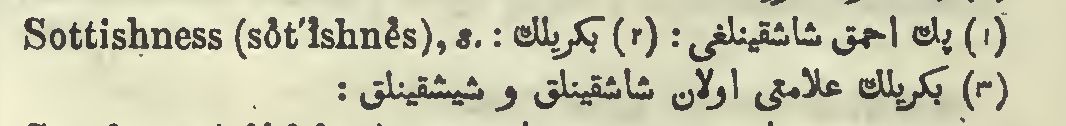 Sottishness (sŏt′ĭshnĕs), s. : (١) پك احمق شاشقینلغی : (٢) بكریلك :
(٣) بكریلك علامتی اولان شاشقینلق و شیشقینلق :